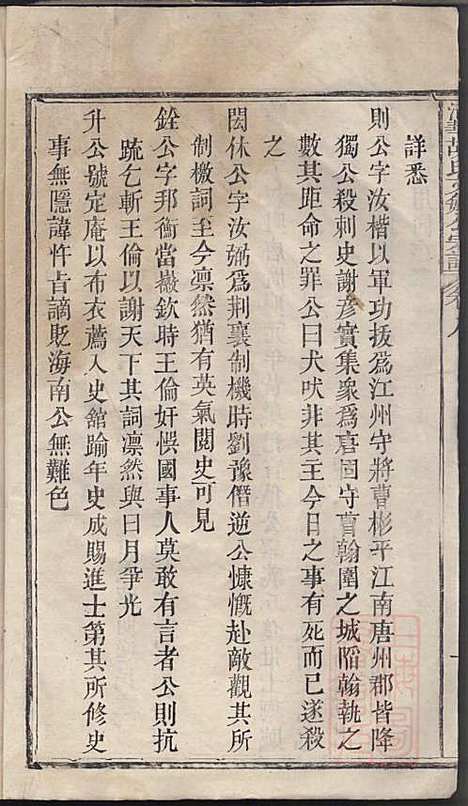 詳悉
則公字汝楷以軍功拔爲江州守將曹彬平江南唐州郡皆降
獨公殺刺史謝彥實集衆爲唐固守曹翰圍之城陷翰執之
數其距命之罪公曰犬吠非其主今日之事有死而已遂殺
之
閎休公字汝弼爲荆襄制機時劉豫僭逆公慷慨赴敵觀其所
制檄詞至今凛然猶有英氣閱史可見
銓公字邦衡當徽欽時王倫奸悞國事人莫敢有言者公則抗
疏乞斬王倫以謝天下其詞凛然與日月爭光
升公號定庵以布衣薦入史舘踰年史成賜進士第其所修史
事無隱諱忤旨謫貶海南公無難色